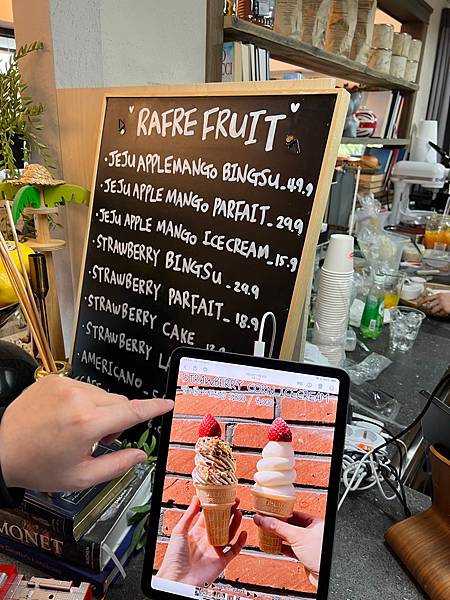 "RAFRE FRUIT"
·JEJU APPLEMANGO BINGSU_49.9
·JEJU APPLE MANGO PARFAIT_29.9
·JEJU APPLE MANGO ICECREAM_15.9
·STRAWBERRY BINGSU_29.9
·STRAWBERRY PARFAIT_18.9
·STRAWBERRY CAKE
·STRAWBERRY
·AMERICANO
STRAWBERRY CORN ICECREAM
MONET